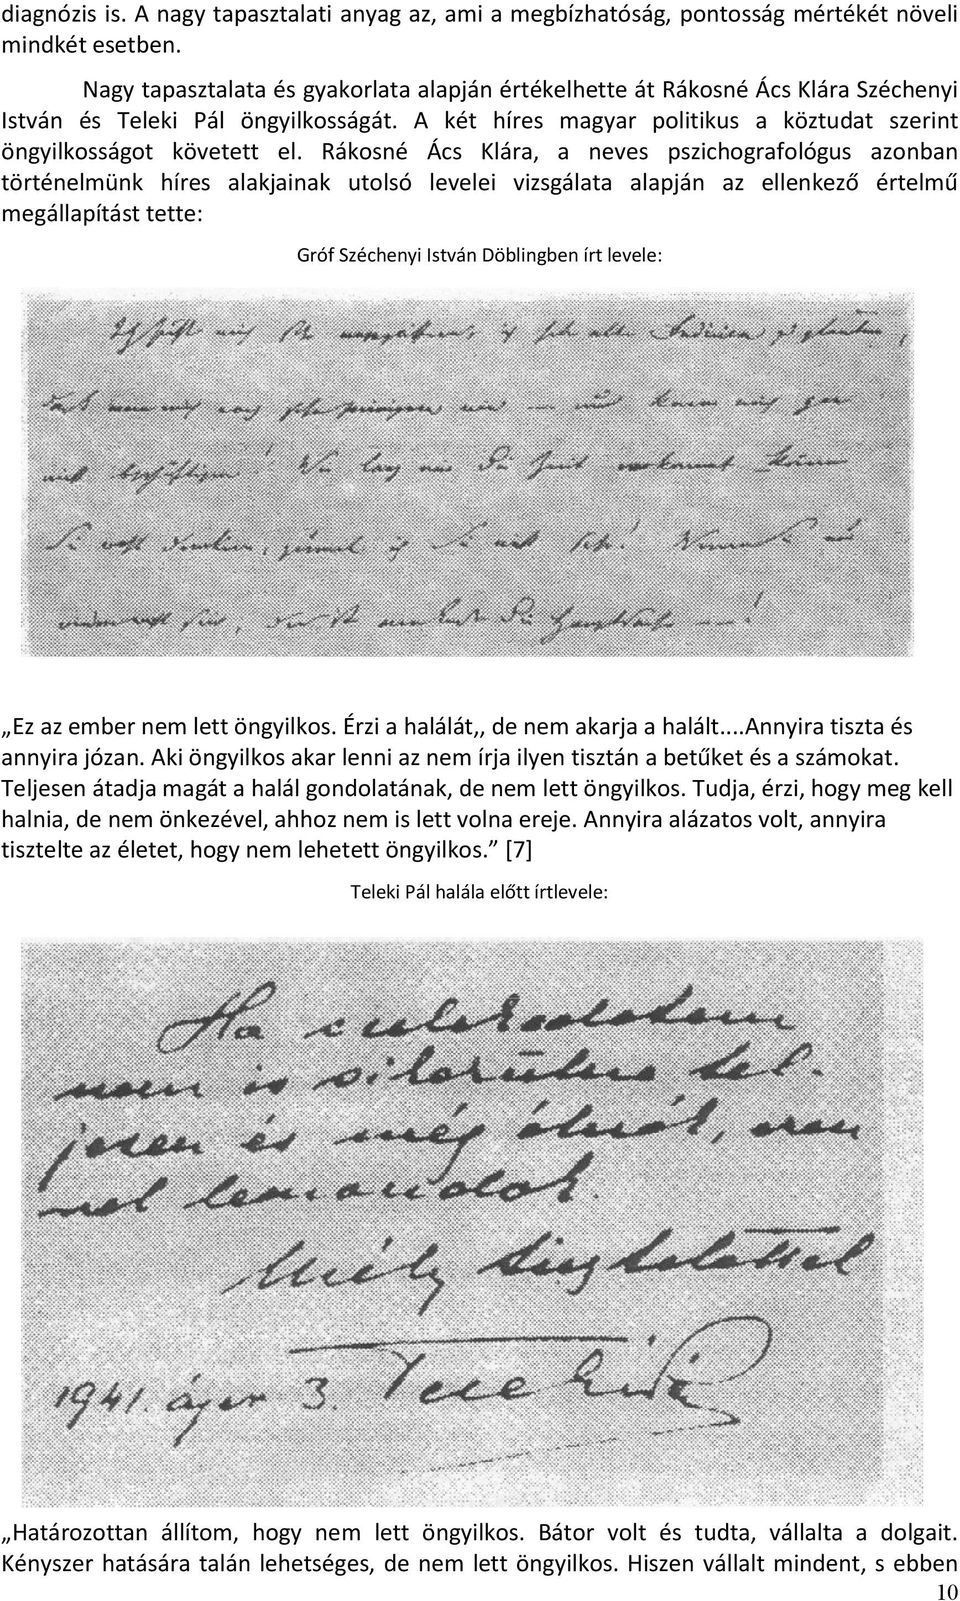 diagnózis is. A nagy tapasztalati anyag az, ami a megbízhatóság, pontosság mértékét növeli
mindkét esetben.
Nagy tapasztalata és gyakorlata alapján értékelhette át Rákosné Ács Klára Széchenyi
István és Teleki Pál öngyilkosságát. A két híres magyar politikus a köztudat szerint
öngyilkosságot követett el. Rákosné Ács Klára, a neves pszichografológus azonban
történelmünk híres alakjainak utolsó levelei vizsgálata alapján az ellenkező értelmű
megállapítást tette:
Gróf Széchenyi István Döblingben írt levele:
mich
man mich noch
nicht
Sie nicht
„Ez az ember nem lett öngyilkos. Érzi a halálát,, de nem akarja a halált...Annyira tiszta és
annyira józan. Aki öngyilkos akar lenni az nem írja ilyen tisztán a betűket és a számokat.
Teljesen átadja magát a halál gondolatának, de nem lett öngyilkos. Tudja, érzi, hogy meg kell
halnia, de nem önkezével, ahhoz nem is lett volna ereje. Annyira alázatos volt, annyira
tisztelte az életet, hogy nem lehetett öngyilkos.” [7]
Teleki Pál halála előtt írtlevele:
Ha cselekedetem
nem is sikerülne tel-
jesen és még élnék, ezen-
nel lemondok.
Mély tisztelettel
1941. ápr 3. Teleki Pál
„Határozottan állítom, hogy nem lett öngyilkos. Bátor volt és tudta, vállalta a dolgait.
Kényszer hatására talán lehetséges, de nem lett öngyilkos. Hiszen vállalt mindent, s ebben
10